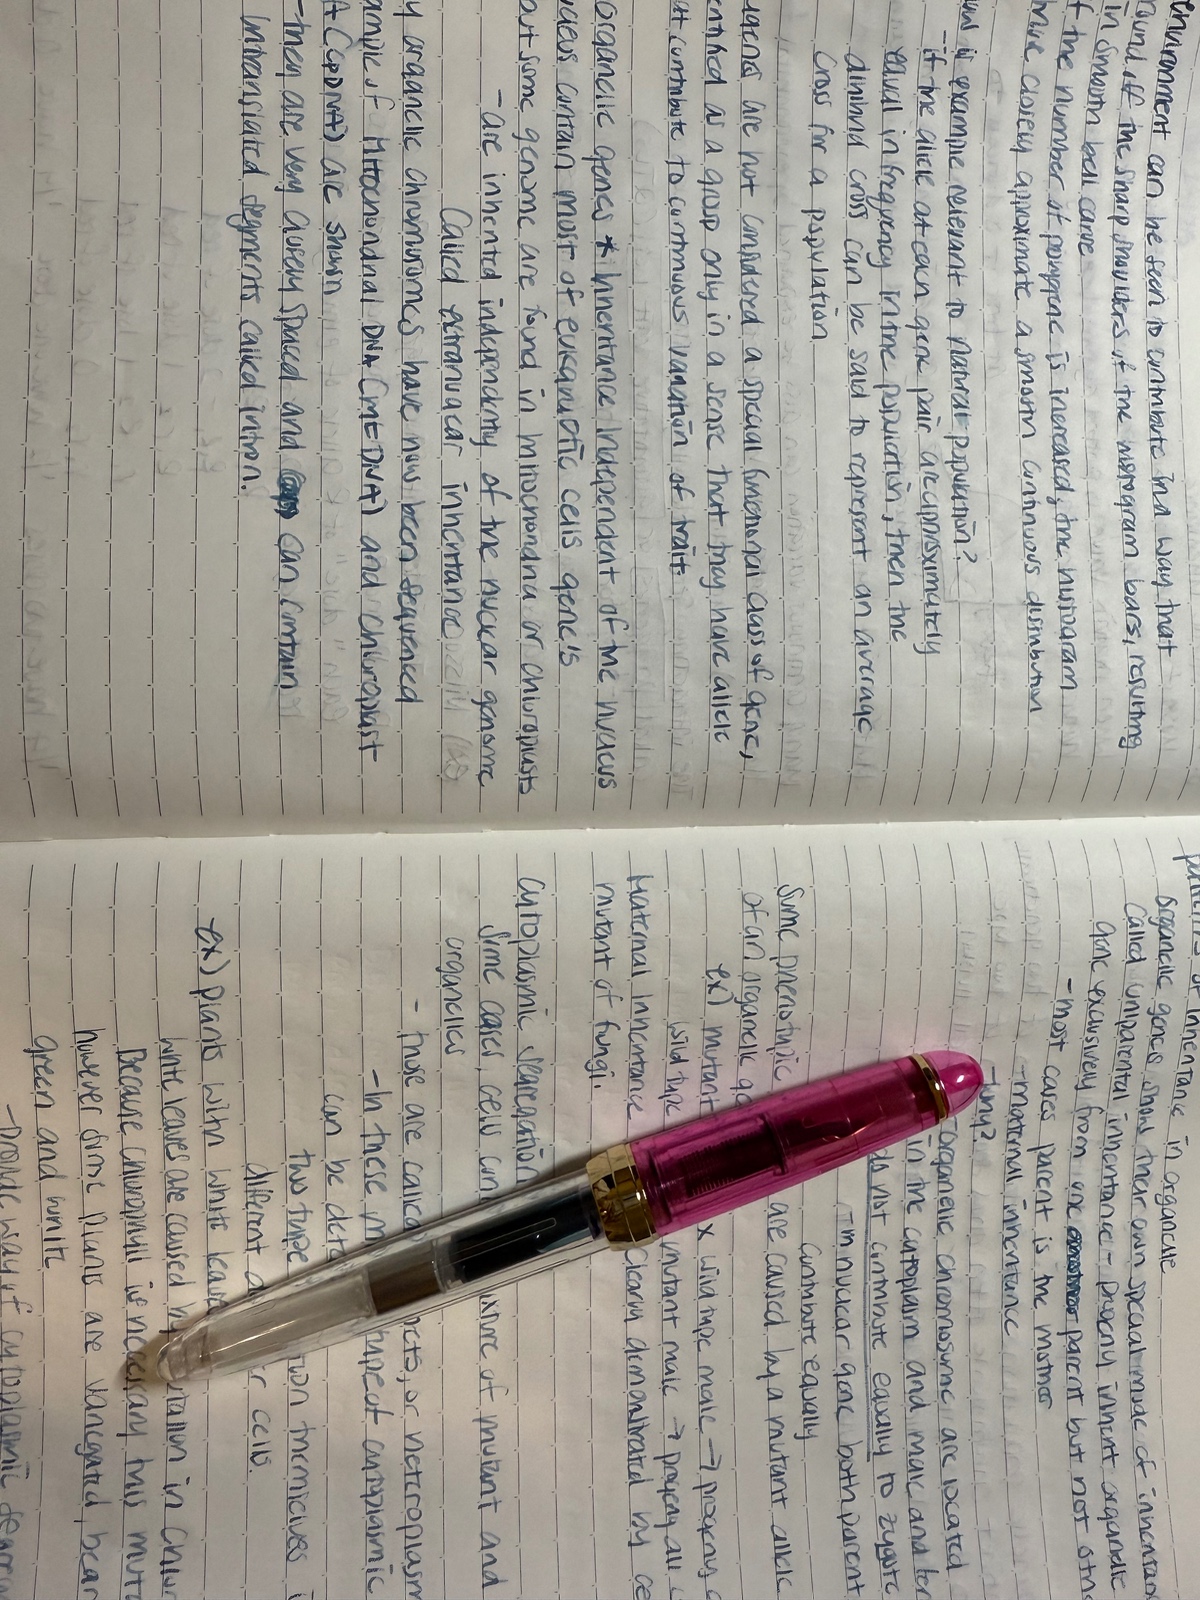 environment can be seen to contribute in a way that
round off the sharp shoulders of the histogram bars, resulting
in smooth bell curve
f the number of polygene is increased, the histogram
more closely approximate a smooth continuous distribution
is example relevant to Natural population?
- if the allele at each gene pair are approximately
equal in frequency in the population, then the
dihybrid cross can be said to represent an average
cross for a population
ygenes are not considered a special functional class of gene,
entified as a group only in a sense that they have allele
at contribute to continuous variation of trait
organelle genes * Inheritance independent of the nucleus
ucleus contain most of eukaryotic cells gene's
out some genome are found in mitochondria or chloroplasts
- are inherited independently of the nuclear genome
called extranuclear inheritance
y organelle chromosomes have now been sequenced
ample of Mitochondrial DNA (mtDNA) and chloroplast
A (cpDNA) are shown
- they are very closely spaced and can contain
untranslated segments called intron.
of inheritance in organelle
Organelle genes show their own special mode of inheritan
called uniparental inheritance - progeny inherit organelle
gene exclusively from one parent but not othe
- most cases parent is the mother
- maternal inheritance
- why?
- organelle chromosome are located
in the cytoplasm and male and fem
do not contribute equally to zygote
- in nuclear gene both parent
contribute equally
Some phenotypic are caused by a mutant allele
of an organelle ge
ex) mutant x wild type male → progeny a
wild type mutant male → progeny all
Maternal inheritance clearly demonstrated by ce
mutant of fungi.
Cytoplasmic segregation
Some cases, cells con ixture of mutant and
organelles
- those are called hets, or heteroplasm
- In these m type of cytoplasmic
can be dete
two type tion themselves i
different d er cells.
-ex) plants with white leave
white leaves are caused by utation in chlor
Because chlorophyll is necessary this muta
however some plants are variegated, bear
green and white
- Provide way of cytoplasmic segreg